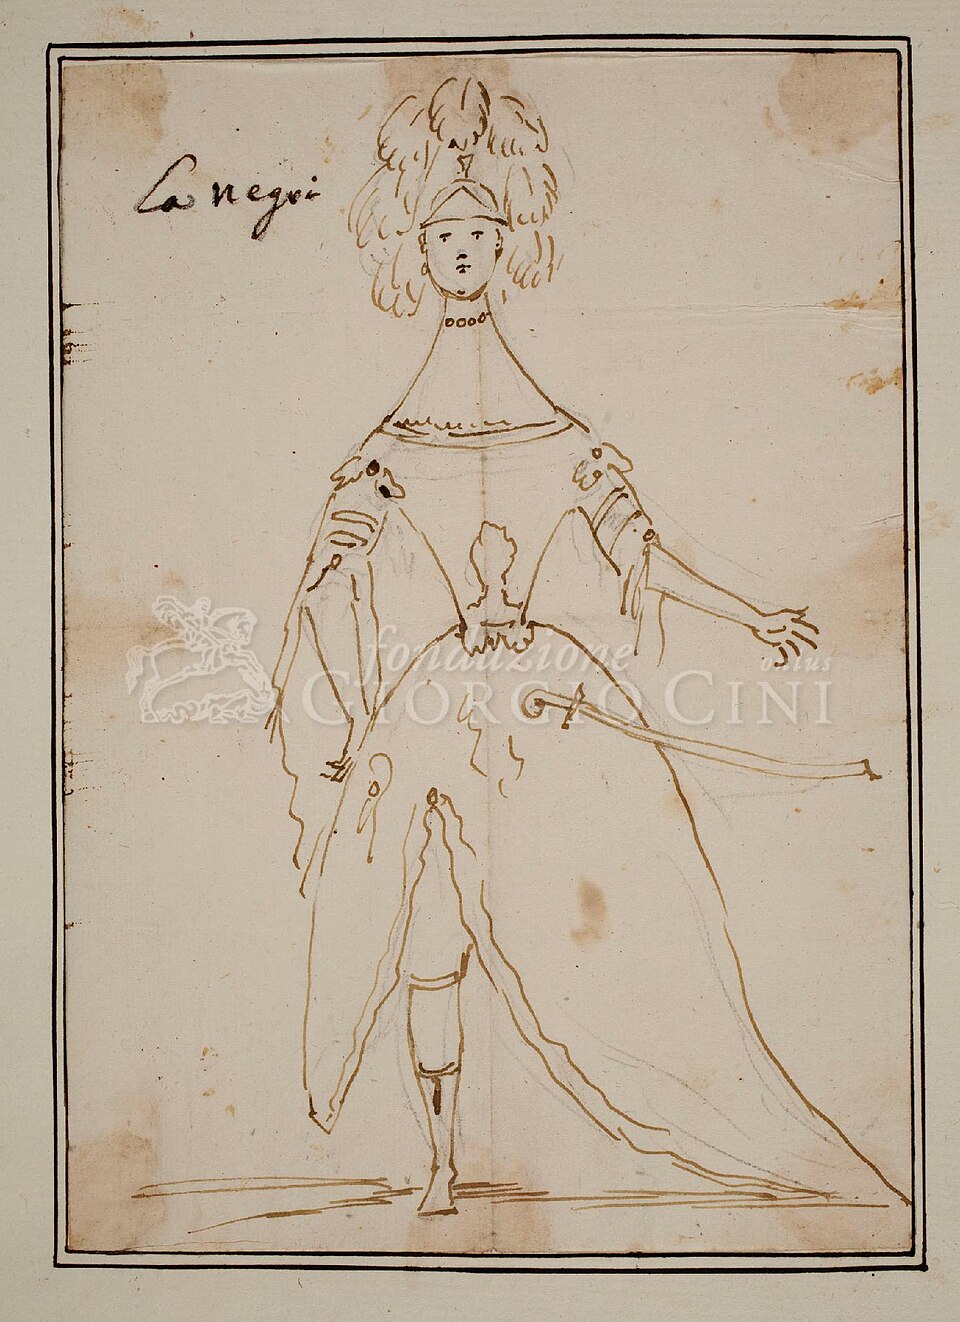 La negri
fondazione
onlus
GIORGIO CINI